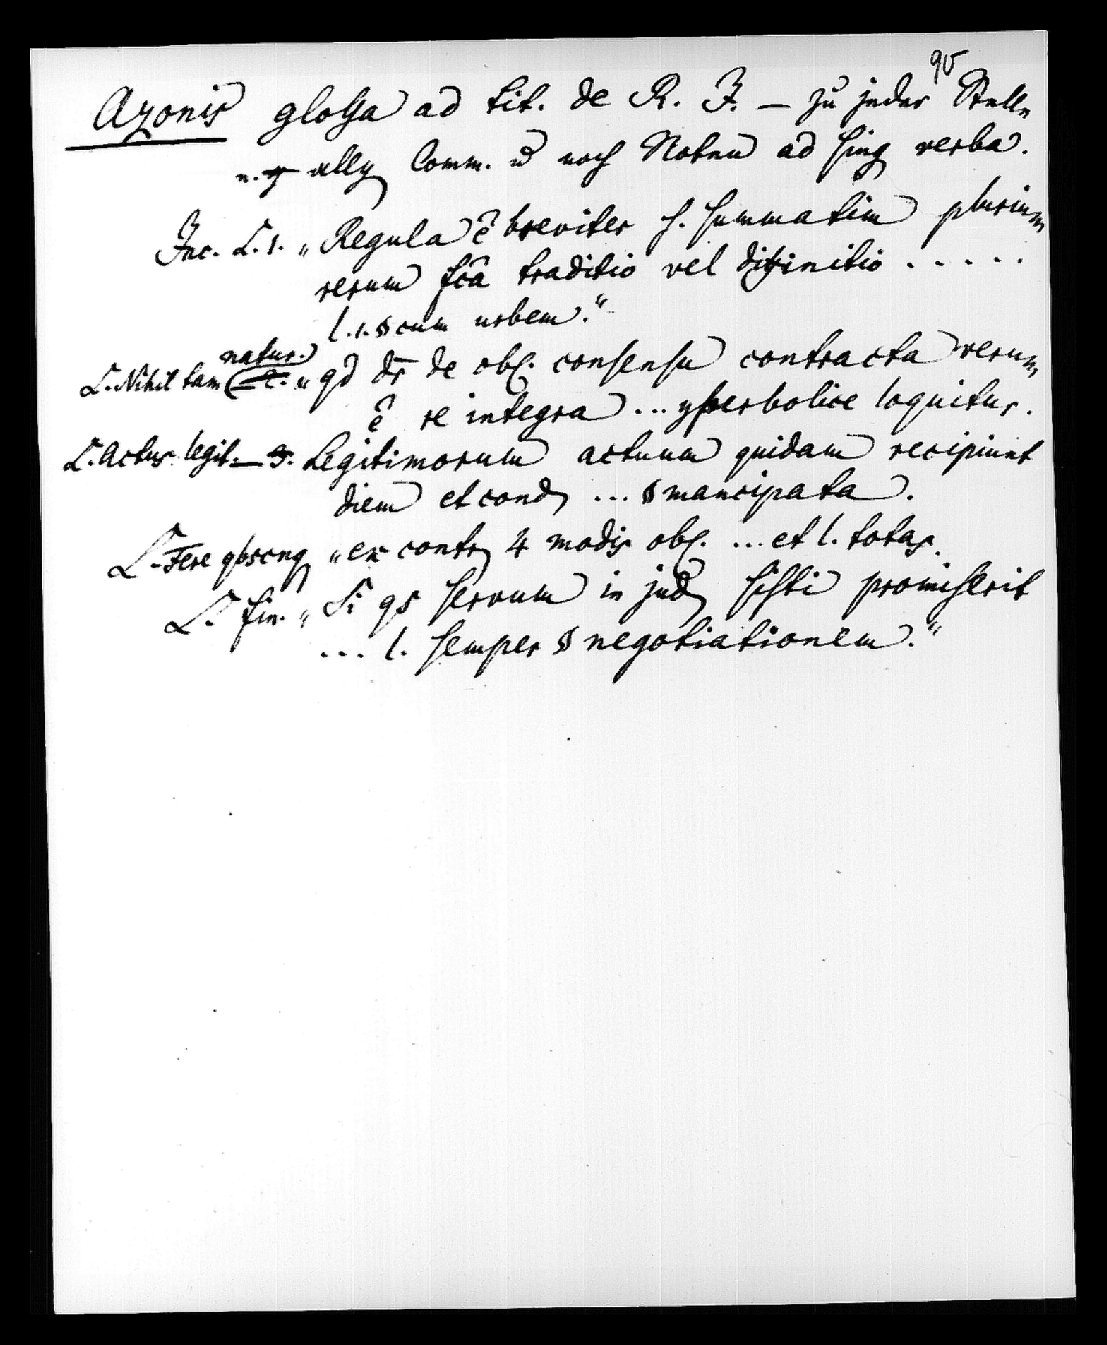 90
Azonis glossa ad tit. de R. J. – zu jeder Stelle
allg Comm. u noch Noten ad sing verba.
Inc. L. 1. „Regula ē breviter s. summatim plurium
rerum fcā traditio vel difinitio . . . . .
l. 1. § cum urbem.“
natur.
L. Nihil tam „qd dr de obl. consensu contracta verum
ē re integra ... yperbolice loquitur.
L. Actus legit. Legitimorum actuum quidam recipiunt
diem et cond ... § mancipata.
L. Fere qbscnq „ex contr 4 modis obl. ... et l. totas.
L. fin. „Si qs servum in jud sisti promiserit
... l. semper § negotiationem.“